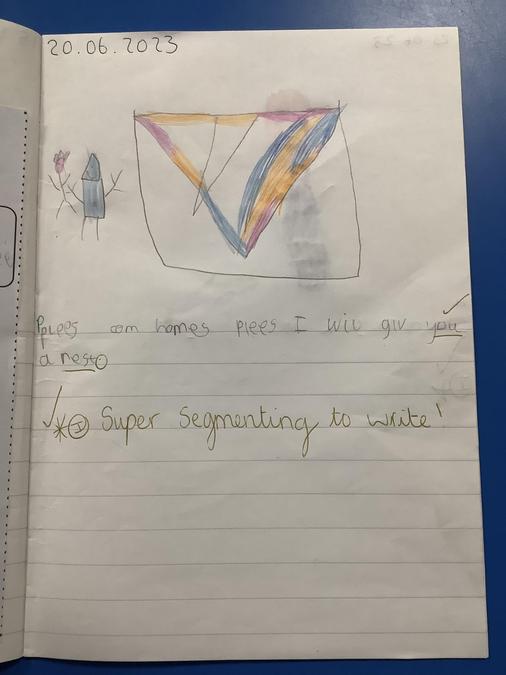 20.06.2023
Pplees com homes plees I wil giv you
a nest.
Super Segmenting to write!